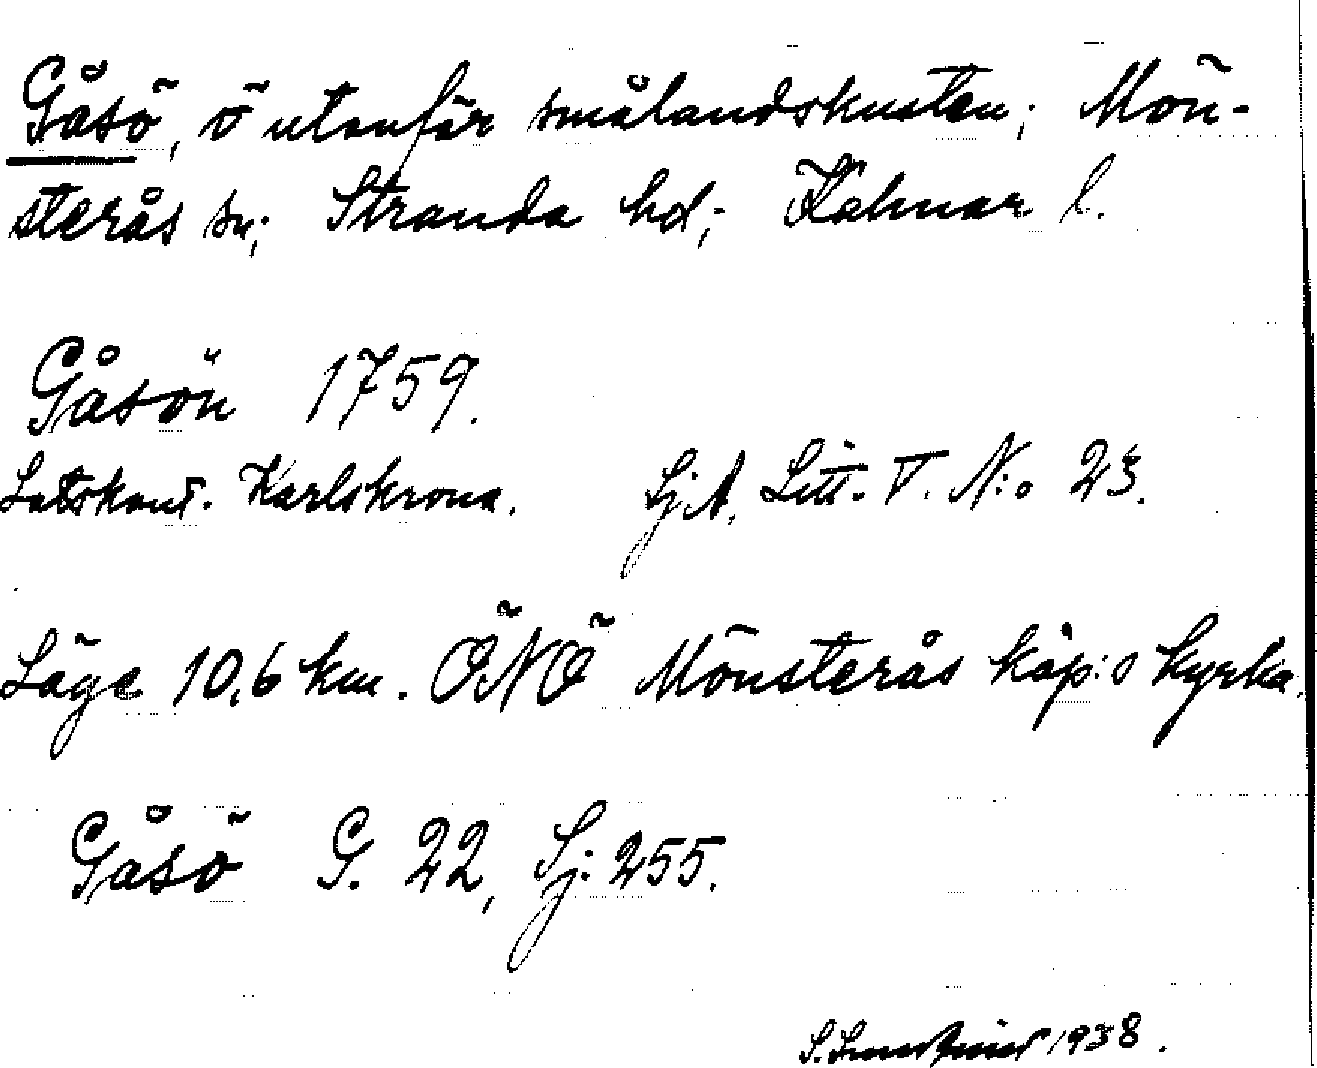 Gåsö, ö utanför smålandskusten; Mön-
sterås sn; Stranda hd; Kalmar l.
Gåsön 1759.
Lotskont. Karlskrona. Sj.A. Litt. V. N:o 23.
Läge 10,6 km. ÖNÖ Mönsterås köp:s kyrka.
Gåsö G. 22, Sj. 255.
S. 1938.